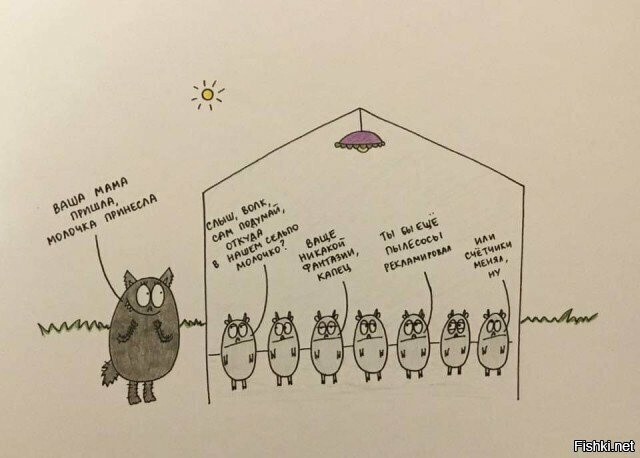 ВАША МАМА
ПРИШЛА,
МОЛОЧКА ПРИНЕСЛА
СЛЫШ, ВОЛК,
САМ ПОДУМАЙ,
ОТКУДА
В НАШЕМ СЕЛЬПО
МОЛОЧКО?
ВАЩЕ
НИКАКОЙ
ФАНТАЗИИ,
КАПЕЦ
ТЫ БЫ ЕЩЁ
ПЫЛЕСОСЫ
РЕКЛАМИРОВАЛ
ИЛИ
СЧЁТЧИКИ
МЕНЯЛ,
НУ
Fishki.net